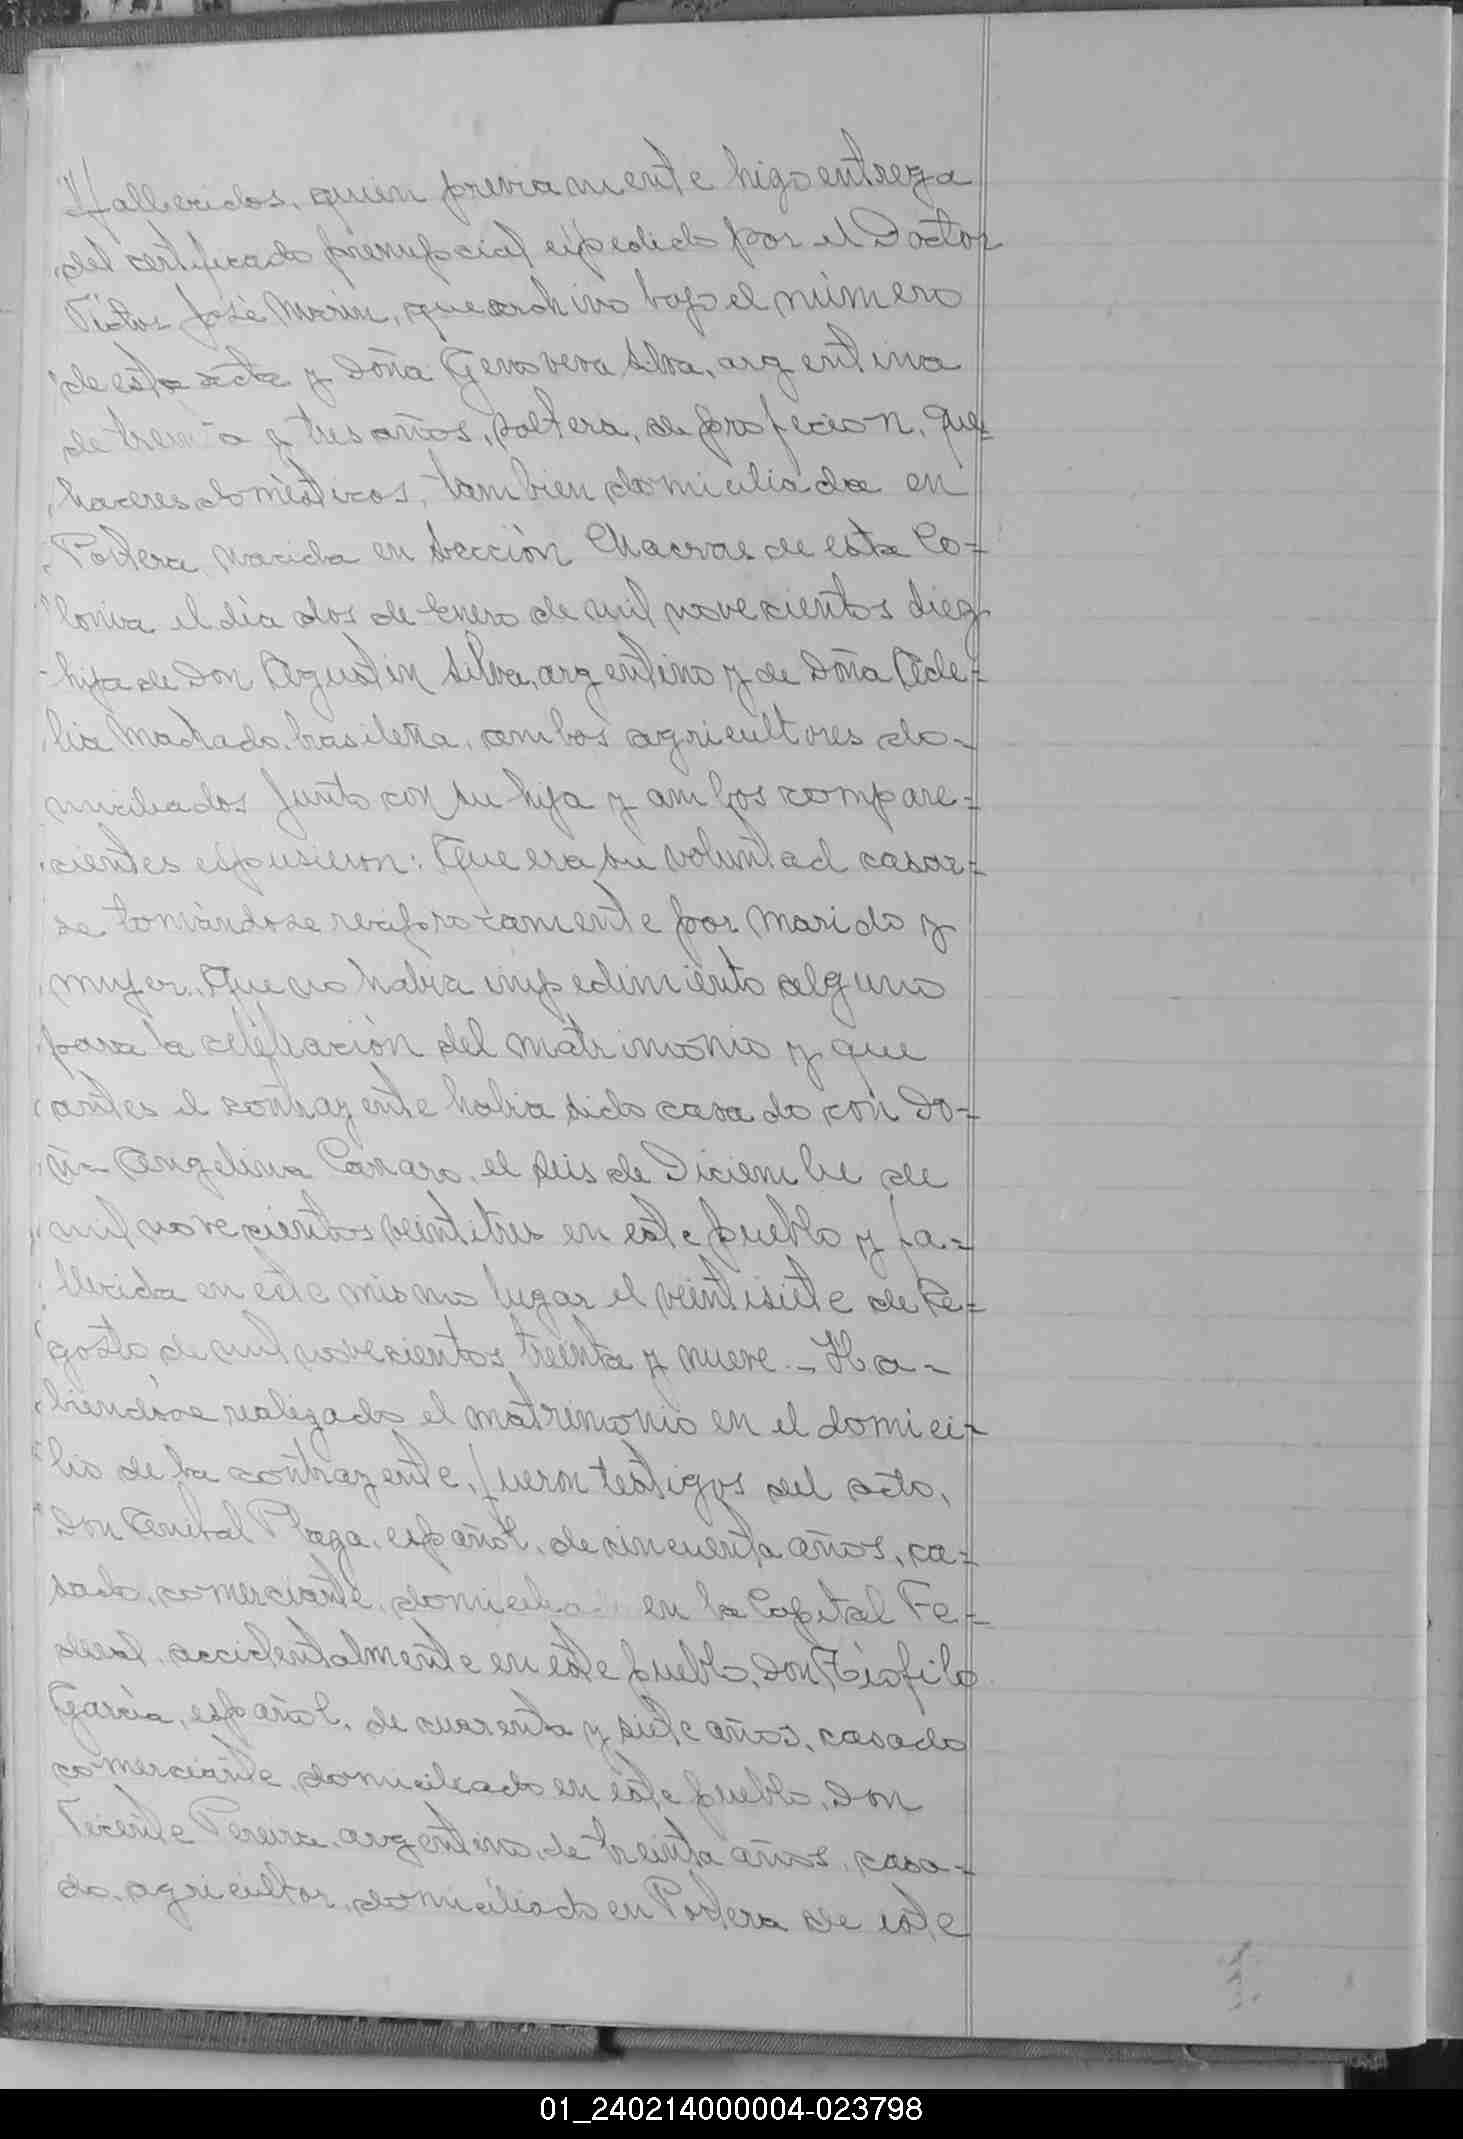 Fallecidos, quien previamente hizo entrega
del certificado prenupcial espedido por el Doctor
Víctor José Marin, que archivo bajo el número
de esta acta y Doña Genoveva Silva, argentina
de treinta y tres años, soltera, de profecion, que=
haceres domésticos, tambien domiciliada en
Portera, nacida en Sección Chacras de esta Co=
lonia el día dos de Enero de mil novecientos diez
hija de Don Agustin Silva, argentino y de Doña Ade=
lia Machado, brasileña, ambos agricultores do-
miciliados junto con su hija y ambos compare=
cientes espusieron: Que era su voluntad casar=
se tomándose reciprocamente por Marido y
mujer. Que no habia impedimiento alguno
para la celebración del matrimonio y que
antes el contrayente habia sido casado con Do=
ña Angelina Canaro, el seis de Diciembre de
mil novecientos veintitres en este pueblo y fa=
llecida en este mismo lugar el veintisiete de A=
gosto de mil novecientos treinta y nueve.- Ha-
biendose realizado el matrimonio en el domici=
lio de la contrayente, fueron testigos del acto,
Don Anibal Plaza, español, de cincuenta años, ca=
sado, comerciante, domicilia en la Capital Fe=
deral, accidentalmente en este pueblo, Don Teófilo
García, español, de cuarenta y siete años, casado
comerciante, domiciliado en este pueblo, Don
Vicente Pereira, argentino, de treinta años, casa=
do, agricultor, domiciliado en Portera de este
01_240214000004-023798